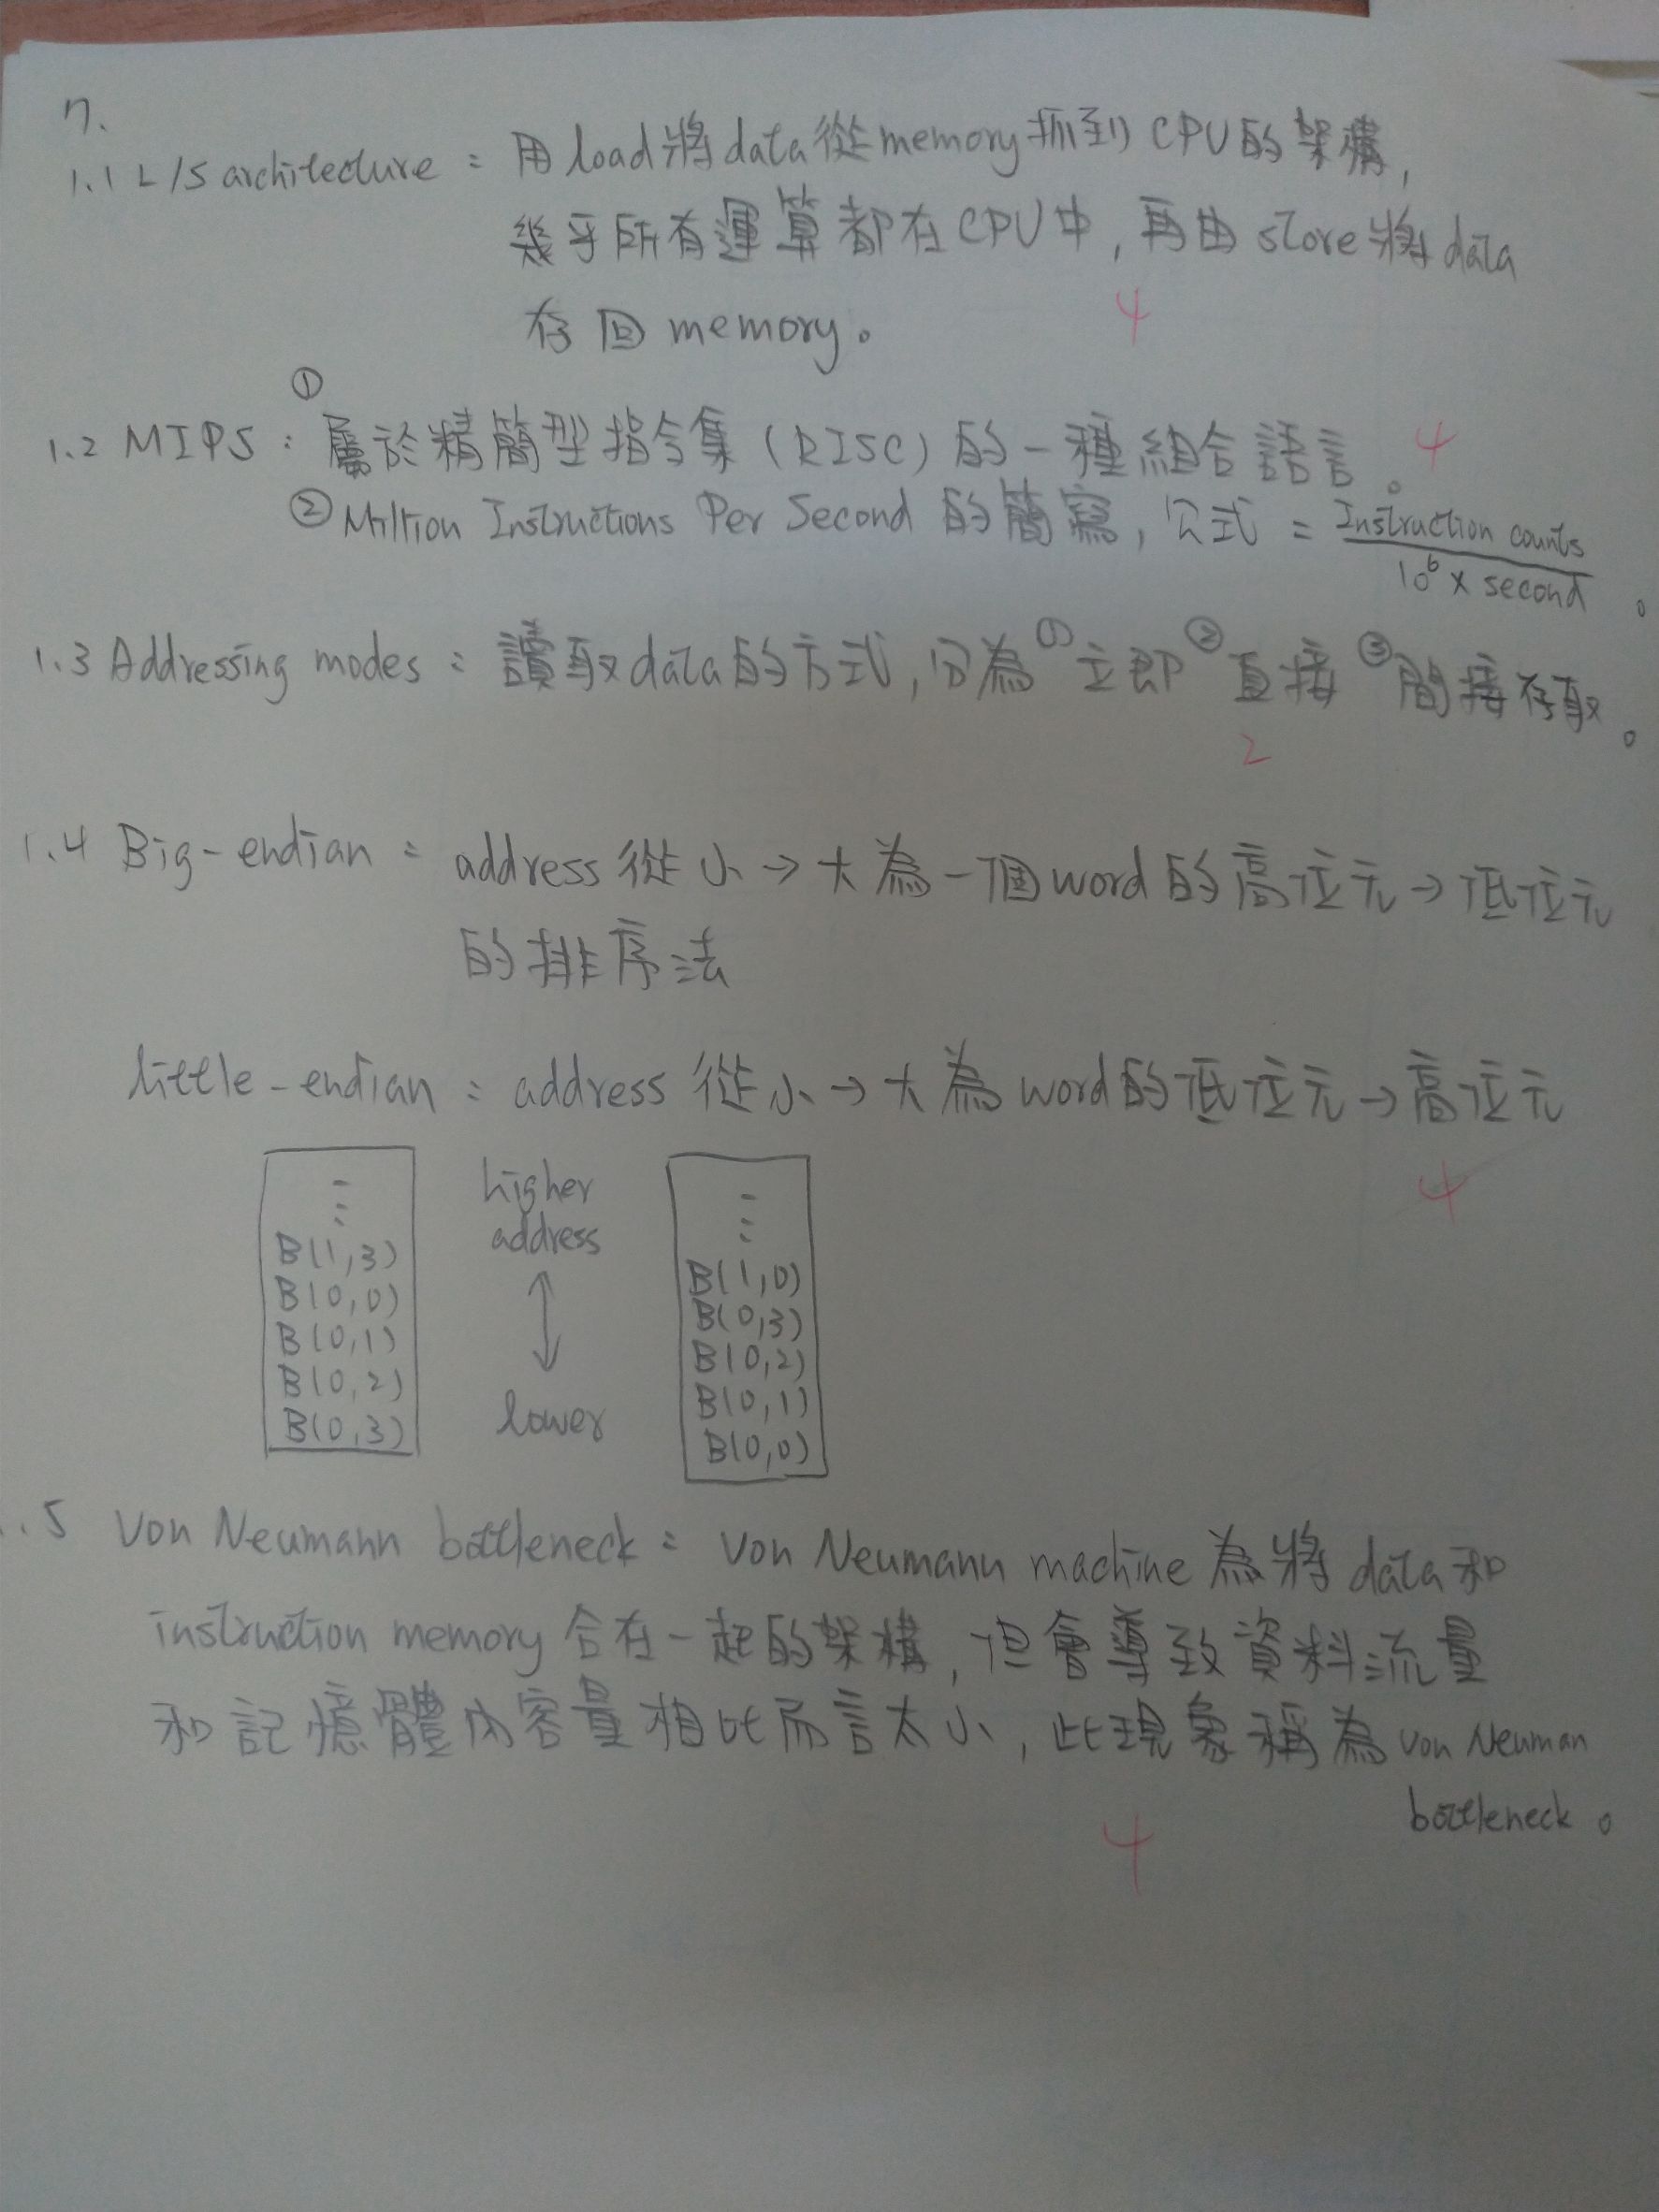 7.
1.1 L/S architecture: 用load將data從memory抓到CPU的架構,
幾乎所有運算都在CPU中,再由store將data
存回memory。
4
①
1.2 MIPS: 屬於精簡型指令集(RISC)的一種組合語言。 4
②Million Instructions Per Second 的簡寫, 公式 = Instruction counts / 10⁶ x second 。
1.3 Addressing modes: 讀取data的方式,分為①立即②直接③間接存取。
2
1.4 Big-endian: address從小→大為一個word的高位元→低位元
的排序法
little-endian: address從小→大為word的低位元→高位元
4
higher
address
↕
lower
B(1,3)
B(0,0)
B(0,1)
B(0,2)
B(0,3)
B(1,0)
B(0,3)
B(0,2)
B(0,1)
B(0,0)
1.5 Von Neumann bottleneck: Von Neumann machine為將data和
instruction memory合在一起的架構,但會導致資料流量
和記憶體內容量相比而言太小,此現象稱為von Neuman
bottleneck。
4